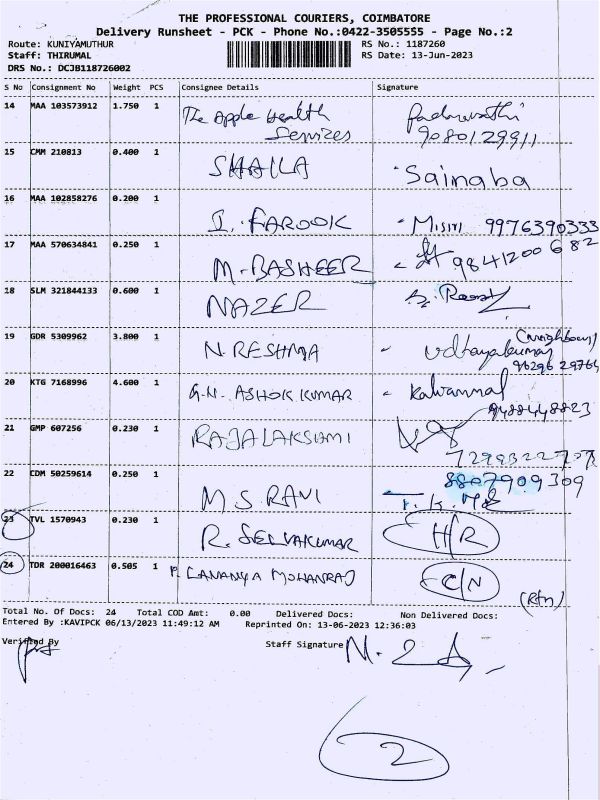 THE PROFESSIONAL COURIERS, COIMBATORE
Delivery Runsheet - PCK - Phone No.:0422-3505555 - Page No.:2
Route: KUNIYAMUTHUR RS No.: 1187260
Staff: THIRUMAL RS Date: 13-Jun-2023
DRS No.: DCJB118726002
S No Consignment No Weight PCS Consignee Details Signature
14 MAA 103573912 1.750 1 The Apple Health
Services
9080129911
15 CMM 210813 0.400 1 SHAILA Sainaba
16 MAA 102858276 0.200 1 I. FAROOK - Misiri 9976390333
17 MAA 570634841 0.250 1 M. BASHEER - 9841200682
18 SLM 321844133 0.600 1 NAZER
19 GDR 5309962 3.800 1 N. RESHMA - udhayakumar
(neighbour)
96296 29764
20 KTG 7168996 4.600 1 G.N. ASHOK KUMAR - Kalianmal
9488448823
21 GMP 607256 0.230 1 RAJALAKSHMI
22 CDM 50259614 0.250 1 M S RAVI
8807909309
23 TVL 1570943 0.230 1 R. SELVAKUMAR H/R
24 TDR 200016463 0.505 1 P. LAVANYA MOHANRAJ C/N
(Rtn)
Total No. Of Docs: 24 Total COD Amt: 0.00 Delivered Docs: Non Delivered Docs:
Entered By :KAVIPCK 06/13/2023 11:49:12 AM Reprinted On: 13-06-2023 12:36:03
Verified By Staff Signature
2